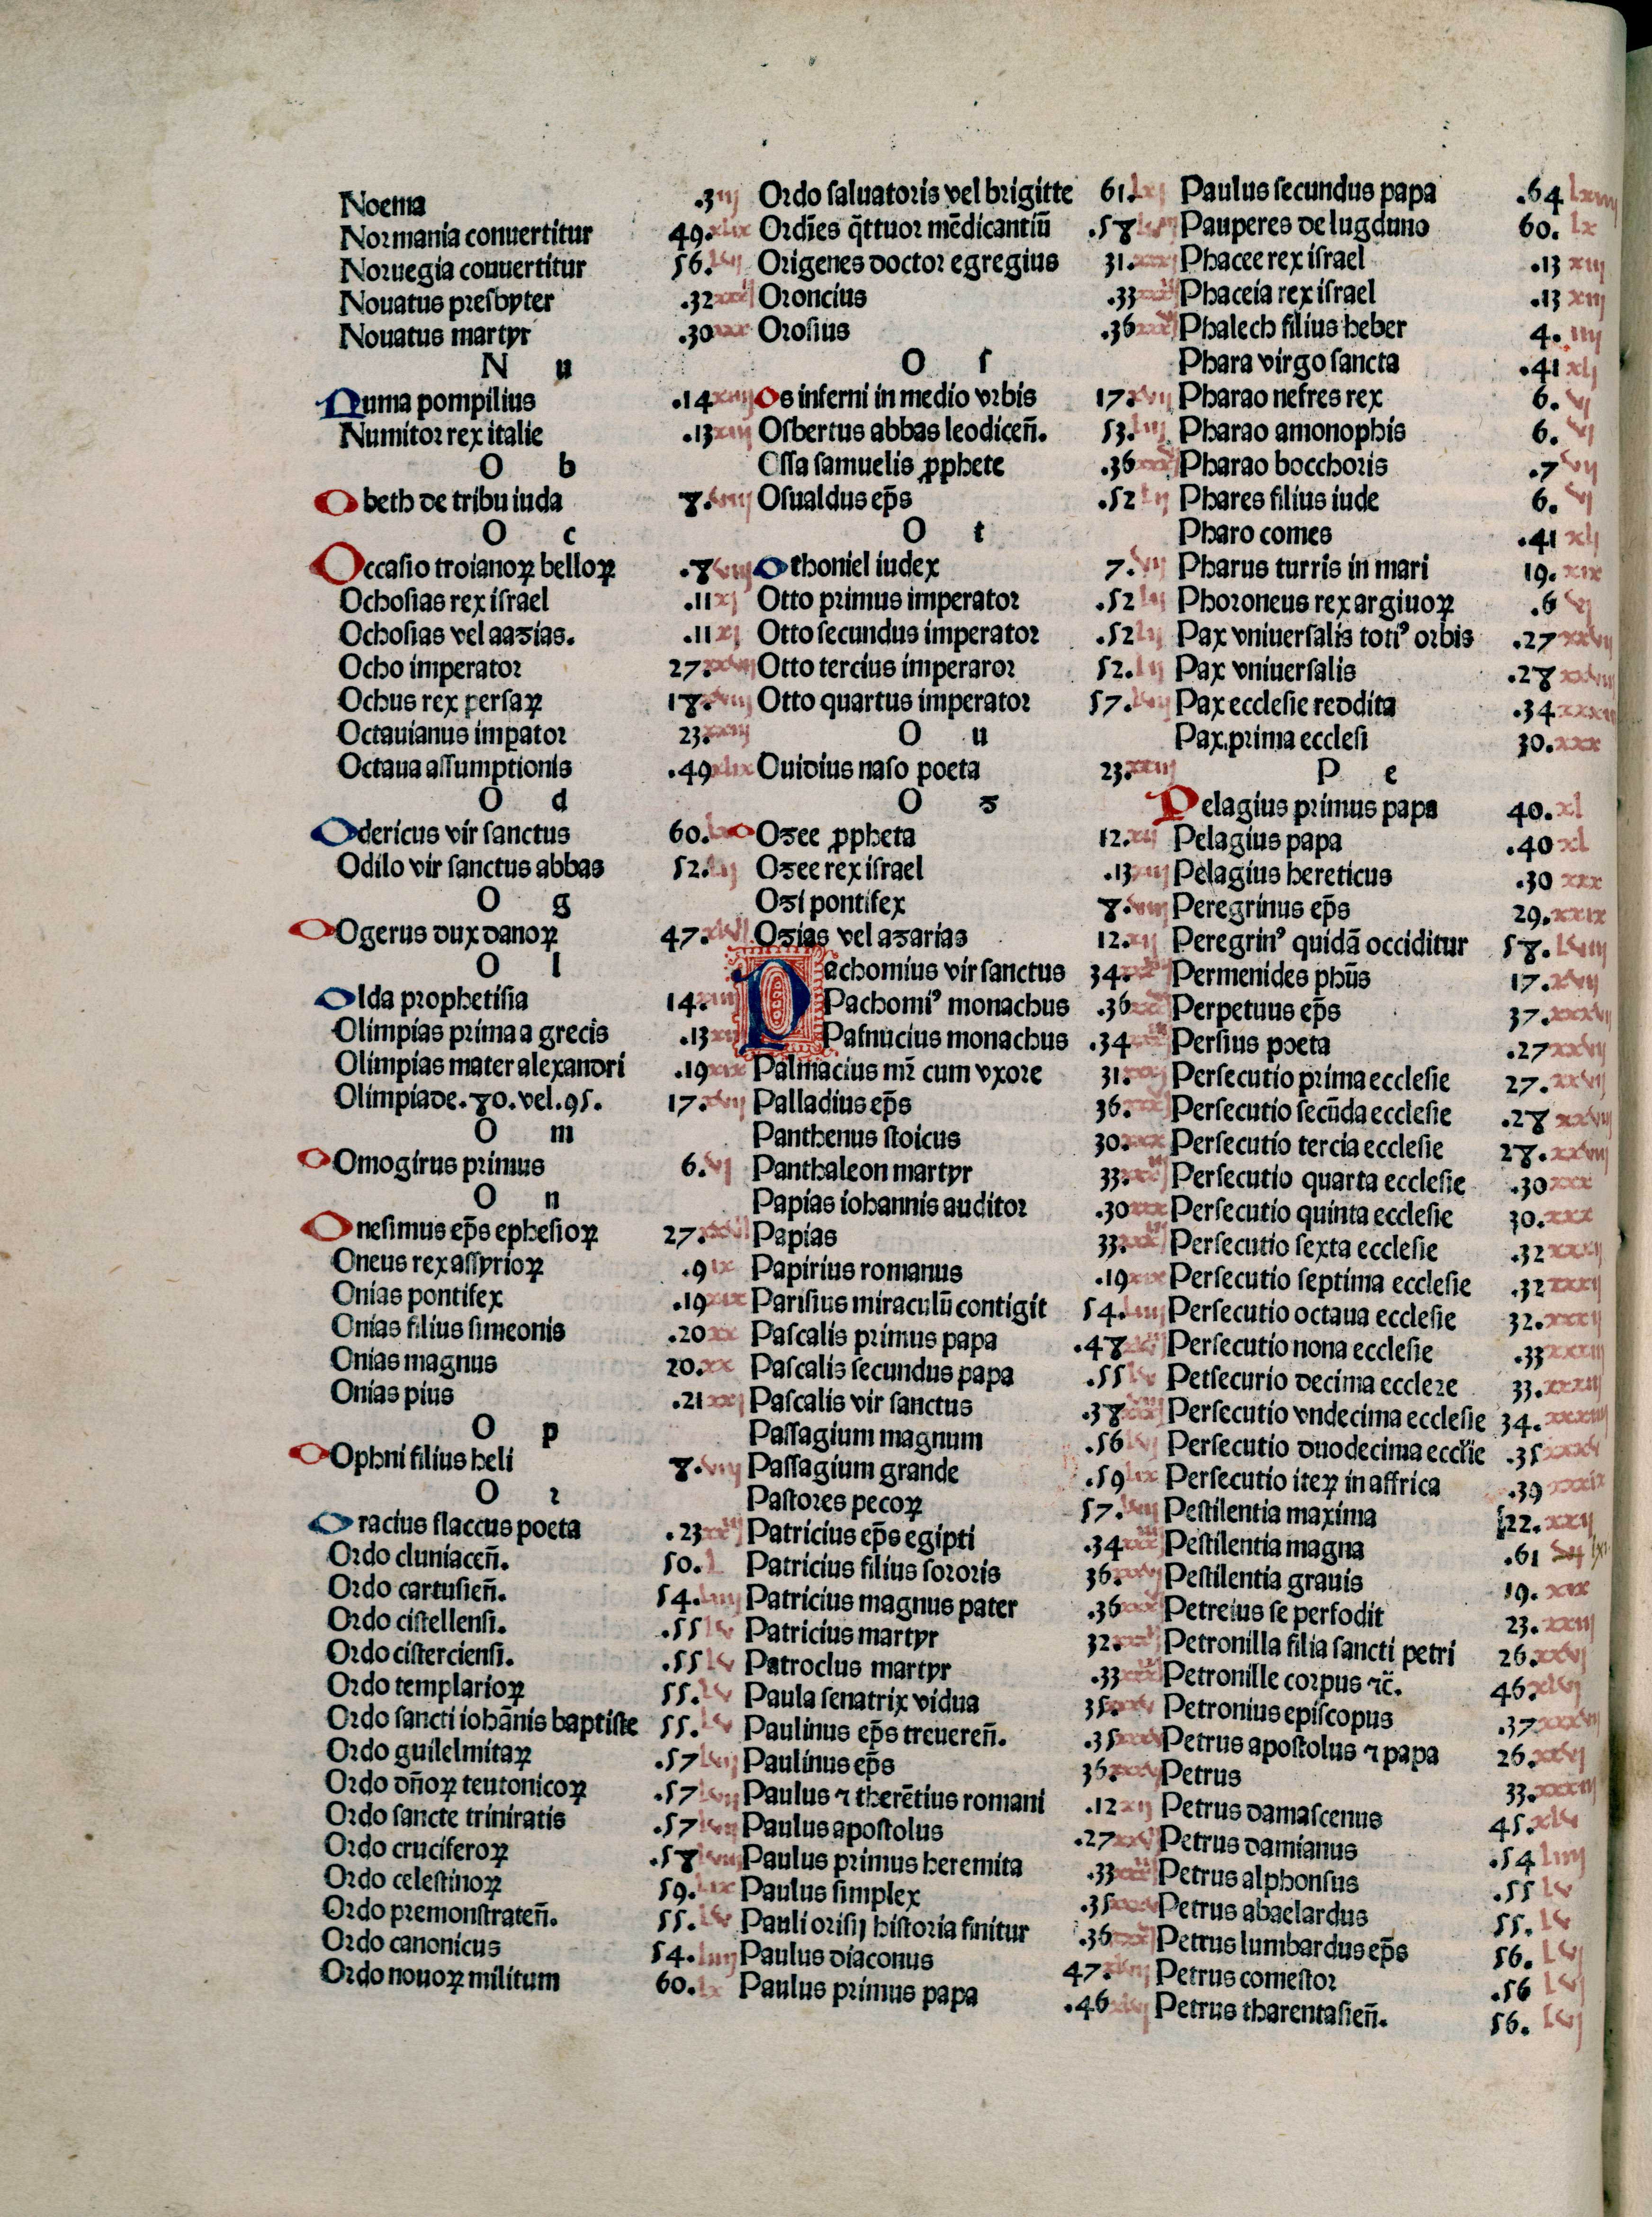 Noema .3 iij
Normania conuertitur 49. xlix
Noruegia conuertitur 56. lvj
Nouatus presbyter .32 xxxij
Nouatus martyr .30 xxx
N u
Numa pompilius .14 xiiij
Numitor rex italie .13 xiij
O b
Obeth de tribu iuda 8. viij
O c
Occasio troianoꝝ belloꝝ .8 viij
Ochosias rex israel .11 xj
Ochosias vel aazias. .11 xj
Ocho imperator 27. xxvij
Ochus rex persaꝝ 18. xviij
Octauianus impator 23. xxiij
Octaua assumptionis .49 xlix
O d
Odericus vir sanctus 60. lx
Odilo vir sanctus abbas 52. lij
O g
Ogerus dux danoꝝ 47. xlvij
O l
Olda prophetisia 14. xiiij
Olimpias prima a grecis .13 xiij
Olimpias mater alexandri .19 xix
Olimpiade. 80. vel. 95. 17. xvij
O m
Omogirus primus 6. vj
O n
Onesimus ep̄s ephesioꝝ 27. xxvij
Oneus rex assyrioꝝ .9 ix
Onias pontifex .19 xix
Onias filius simeonis .20 xx
Onias magnus 20. xx
Onias pius .21 xxj
O p
Ophni filius heli 8. viij
O r
Oracius flaccus poeta .23 xxiij
Ordo cluniaceñ. 50. l
Ordo cartusieñ. 54. liiij
Ordo cistellensi. .55 lv
Ordo cisterciensi. .55 lv
Ordo templarioꝝ 55. lv
Ordo sancti iohānis baptiste 55. lv
Ordo guilelmitaꝝ .57 lvij
Ordo dñoꝝ teutonicoꝝ .57 lvij
Ordo sancte triniratis .57 lvij
Ordo cruciferoꝝ .58 lviij
Ordo celestinoꝝ 59. lix
Ordo premonstrateñ. 55. lv
Ordo canonicus 54. liiij
Ordo nouoꝝ militum 60. lx
Ordo saluatoris vel brigitte 61. lxj
Ordīes q̄ttuor mēdicantiū .58 lviij
Origenes doctor egregius 31. xxxj
Oroncius .33 xxxiij
Orosius .36 xxxvj
O s
Os inferni in medio vrbis 17. xvij
Osbertus abbas leodiceñ. 53. liij
Ossa samuelis ꝓphete .36 xxxvj
Osualdus ep̄s .52 lij
O t
Othoniel iudex 7. vij
Otto primus imperator .52 lij
Otto secundus imperator .52 lij
Otto tercius imperaror 52. lij
Otto quartus imperator 57. lvij
O u
Ouidius naso poeta 23. xxiij
O z
Ozee ꝓpheta 12. xij
Ozee rex israel .13 xiij
Ozi pontifex 8. viij
Ozias vel azarias 12. xij
Pachomius vir sanctus 34. xxxiiij
Pachomiꝰ monachus .36 xxxvj
Pafnucius monachus .34 xxxiiij
Palmacius mr̄ cum vxore 31. xxxj
Palladius ep̄s 36. xxxvj
Panthenus stoicus 30. xxx
Panthaleon martyr 33. xxxiij
Papias iohannis auditor .30 xxx
Papias 33. xxxiij
Papirius romanus .19 xix
Parisius miraculū contigit 54. liiij
Pascalis primus papa .48 xlviij
Pascalis secundus papa .55 lv
Pascalis vir sanctus .38 xxxviij
Passagium magnum .56 lvj
Passagium grande .59 lix
Pastores pecoꝝ 57. lvij
Patricius ep̄s egipti .34 xxxiiij
Patricius filius sororis 36. xxxvj
Patricius magnus pater .36 xxxvj
Patricius martyr 32. xxxij
Patroclus martyr .33 xxxiij
Paula senatrix vidua 35. xxxv
Paulinus ep̄s treuereñ. .35 xxxv
Paulinus ep̄s 36. xxxvj
Paulus ⁊ therētius romani .12 xij
Paulus apostolus .27 xxvij
Paulus primus heremita .33 xxxiij
Paulus simplex .35 xxxv
Pauli orisij historia finitur .36 xxxvj
Paulus diaconus 47. xlvij
Paulus primus papa .46 xlvj
Paulus secundus papa .64 lxiiij
Pauperes de lugduno 60. lx
Phacee rex israel .13 xiij
Phaceia rex israel .13 xiij
Phalech filius heber 4. iiij
Phara virgo sancta .41 xlj
Pharao nefres rex 6. vj
Pharao amonophis 6. vj
Pharao bocchoris .7 vij
Phares filius iude 6. vj
Pharo comes .41 xlj
Pharus turris in mari 19. xix
Phoroneus rex argiuoꝝ .6 vj
Pax vniuersalis totiꝰ orbis .27 xxvij
Pax vniuersalis .28 xxviij
Pax ecclesie reddita .34 xxxiiij
Pax. prima ecclesi 30. xxx
P e
Pelagius primus papa 40. xl
Pelagius papa .40 xl
Pelagius hereticus .30 xxx
Peregrinus ep̄s 29. xxix
Peregrinꝰ quidā occiditur 58. lviij
Permenides phūs 17. xvij
Perpetuus ep̄s 37. xxxvij
Persius poeta .27 xxvij
Persecutio prima ecclesie 27. xxvij
Persecutio secūda ecclesie .28 xxviij
Persecutio tercia ecclesie 28. xxviij
Persecutio quarta ecclesie .30 xxx
Persecutio quinta ecclesie 30. xxx
Persecutio sexta ecclesie .32 xxxij
Persecutio septima ecclesie .32 xxxij
Persecutio octaua ecclesie 32. xxxij
Persecutio nona ecclesie .33 xxxiij
Petsecurio decima eccleze 33. xxxiij
Persecutio vndecima ecclesie 34. xxxiiij
Persecutio duodecima eccl̄ie .35 xxxv
Persecutio iteꝝ in affrica .39 xxxix
Pestilentia maxima 22. xxij
Pestilentia magna .61 lxj
Pestilentia grauis 19. xix
Petreius se perfodit 23. xxiij
Petronilla filia sancti petri 26. xxvj
Petronille corpus ⁊c̄. 46. xlvj
Petronius episcopus .37 xxxvij
Petrus apostolus ⁊ papa 26. xxvj
Petrus 33. xxxiij
Petrus damascenus 45. xlv
Petrus damianus .54 liiij
Petrus alphonsus .55 lv
Petrus abaelardus 55. lv
Petrus lumbardus ep̄s 56. lvj
Petrus comestor .56 lvj
Petrus tharentasieñ. 56. lvj